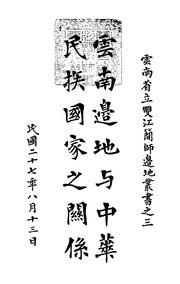 雲南省立雙江簡師邊地叢書之三
雲南邊地与中華
民族國家之關係
民國二十七年八月十三日